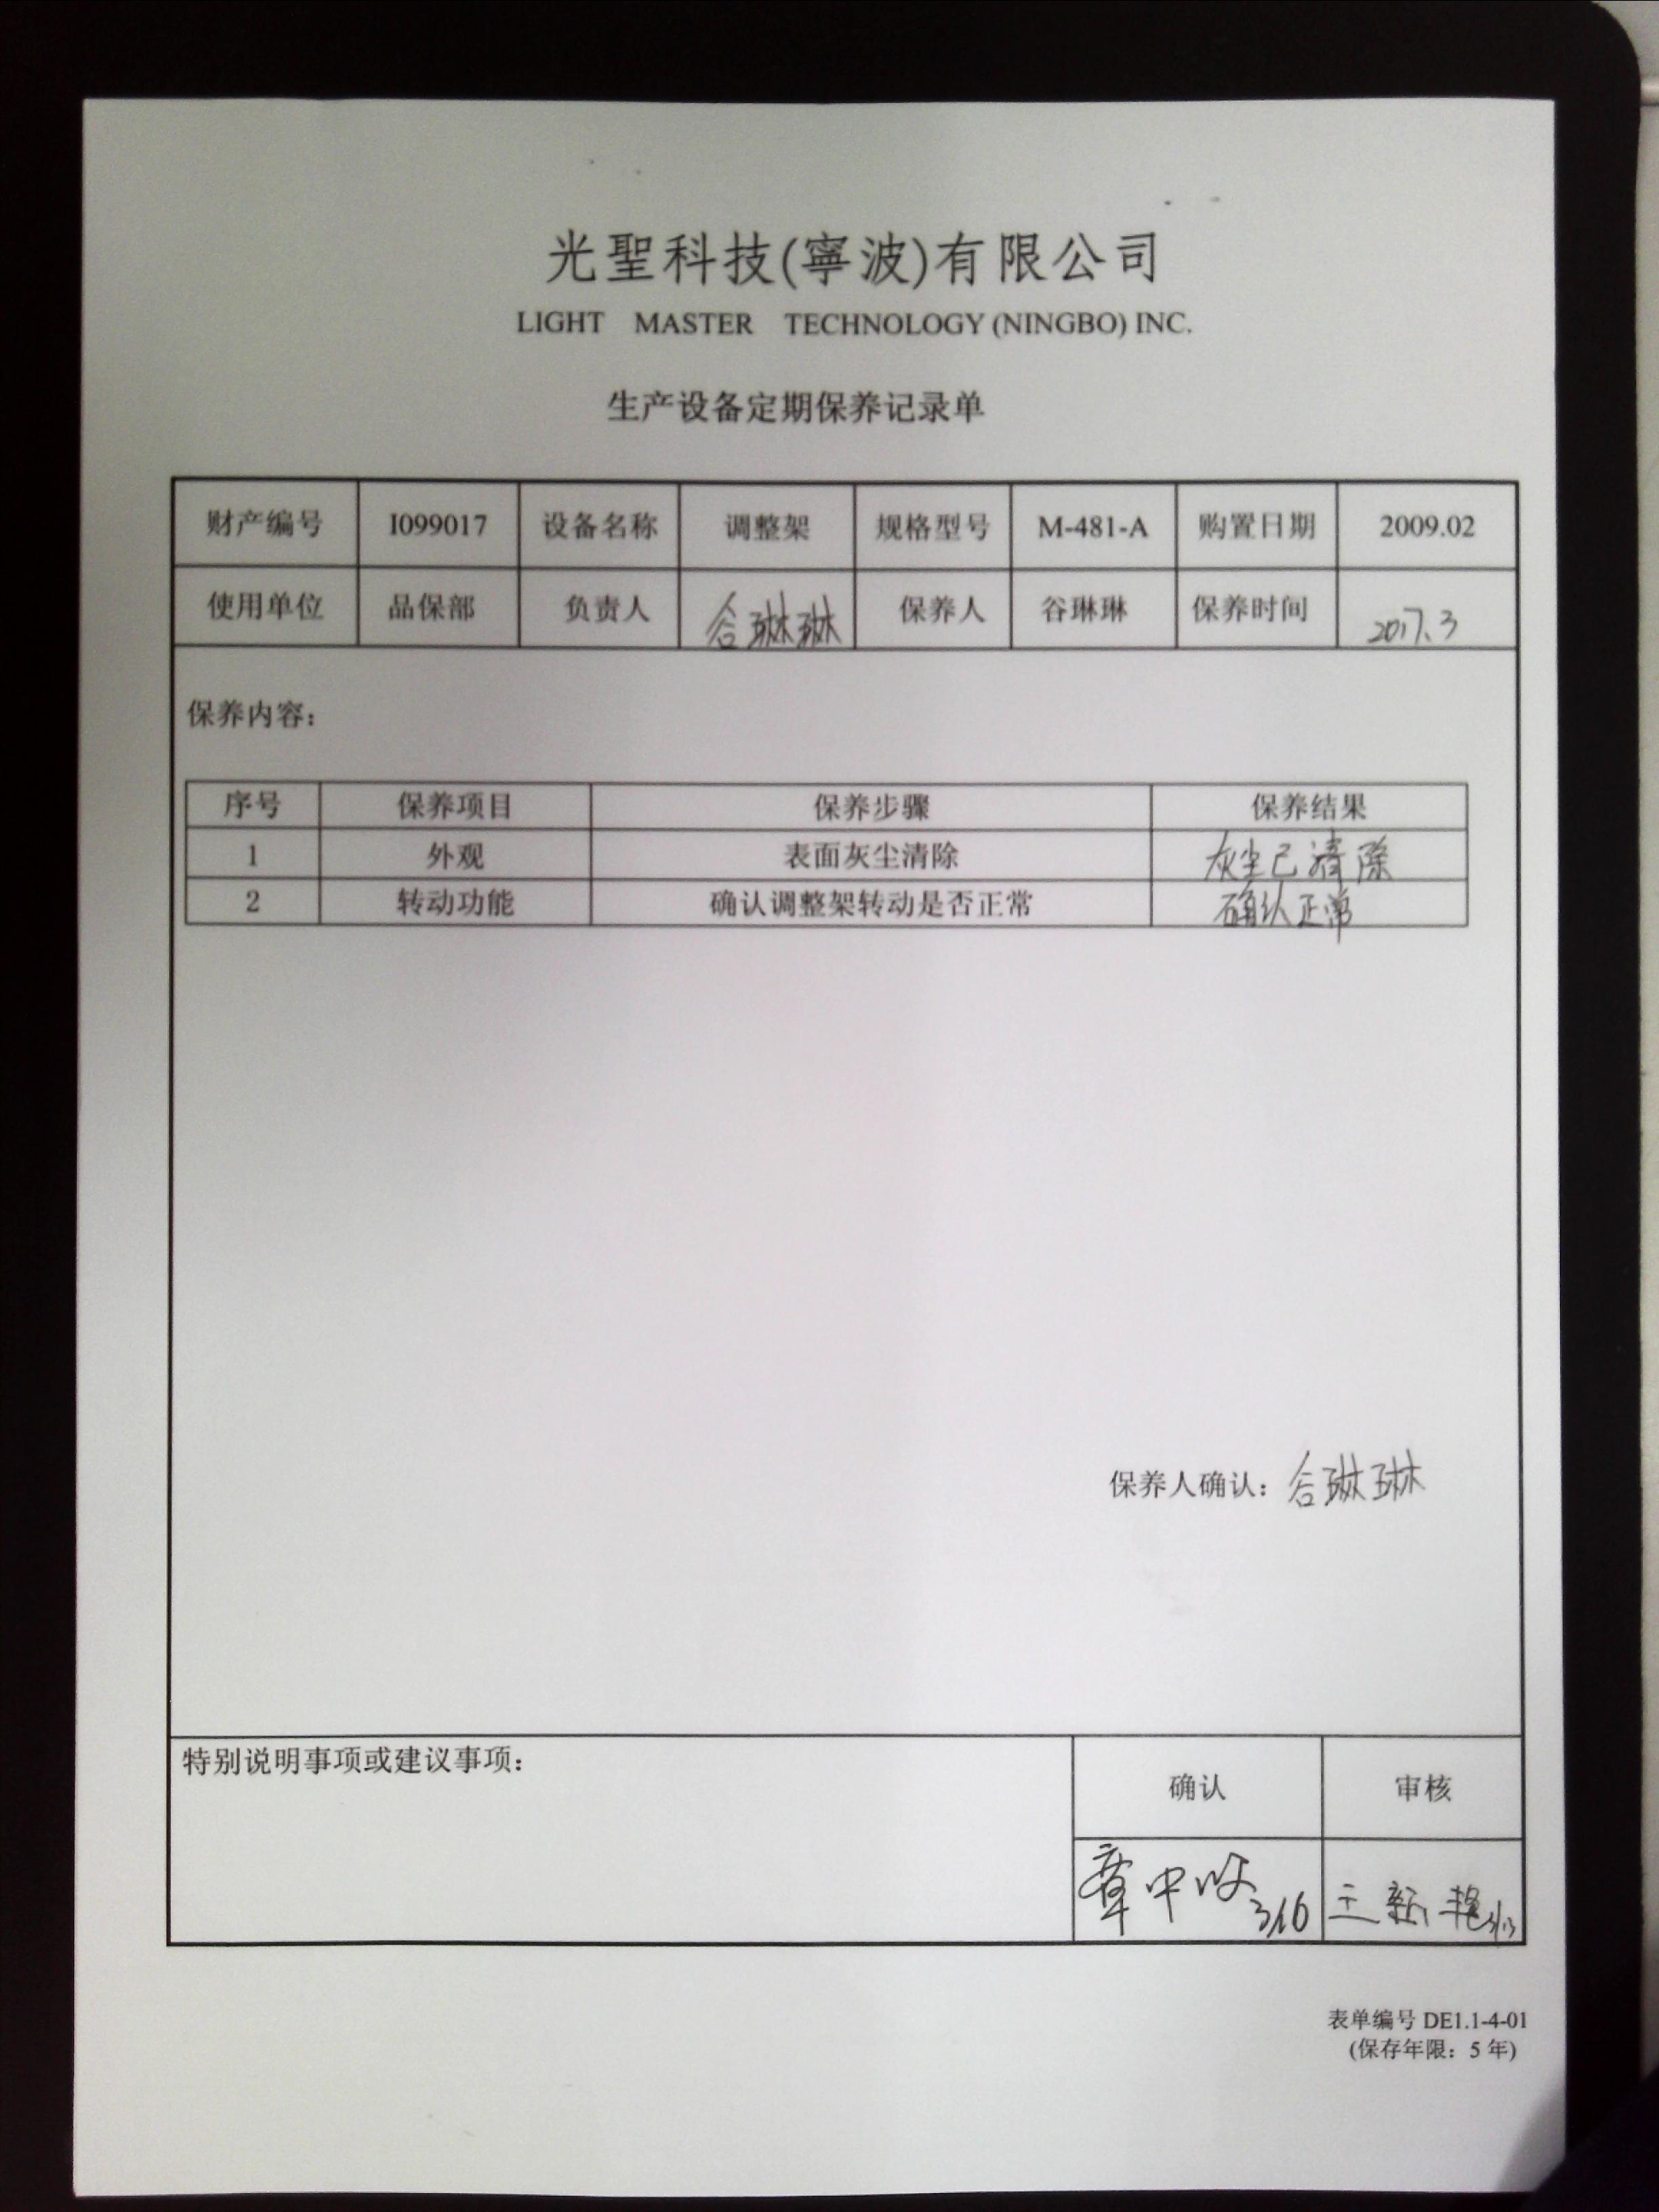 光聖科技(寧波)有限公司
LIGHT MASTER TECHNOLOGY (NINGBO) INC.
生产设备定期保养记录单
财产编号 I099017 设备名称 调整架 规格型号 M-481-A 购置日期 2009.02
使用单位 品保部 负责人 谷琳琳 保养人 谷琳琳 保养时间 2017.3
保养内容:
序号 保养项目 保养步骤 保养结果
1 外观 表面灰尘清除 灰尘已清除
2 转动功能 确认调整架转动是否正常 确认正常
保养人确认: 谷琳琳
特别说明事项或建议事项:
确认 审核
表单编号 DE1.1-4-01
(保存年限: 5 年)